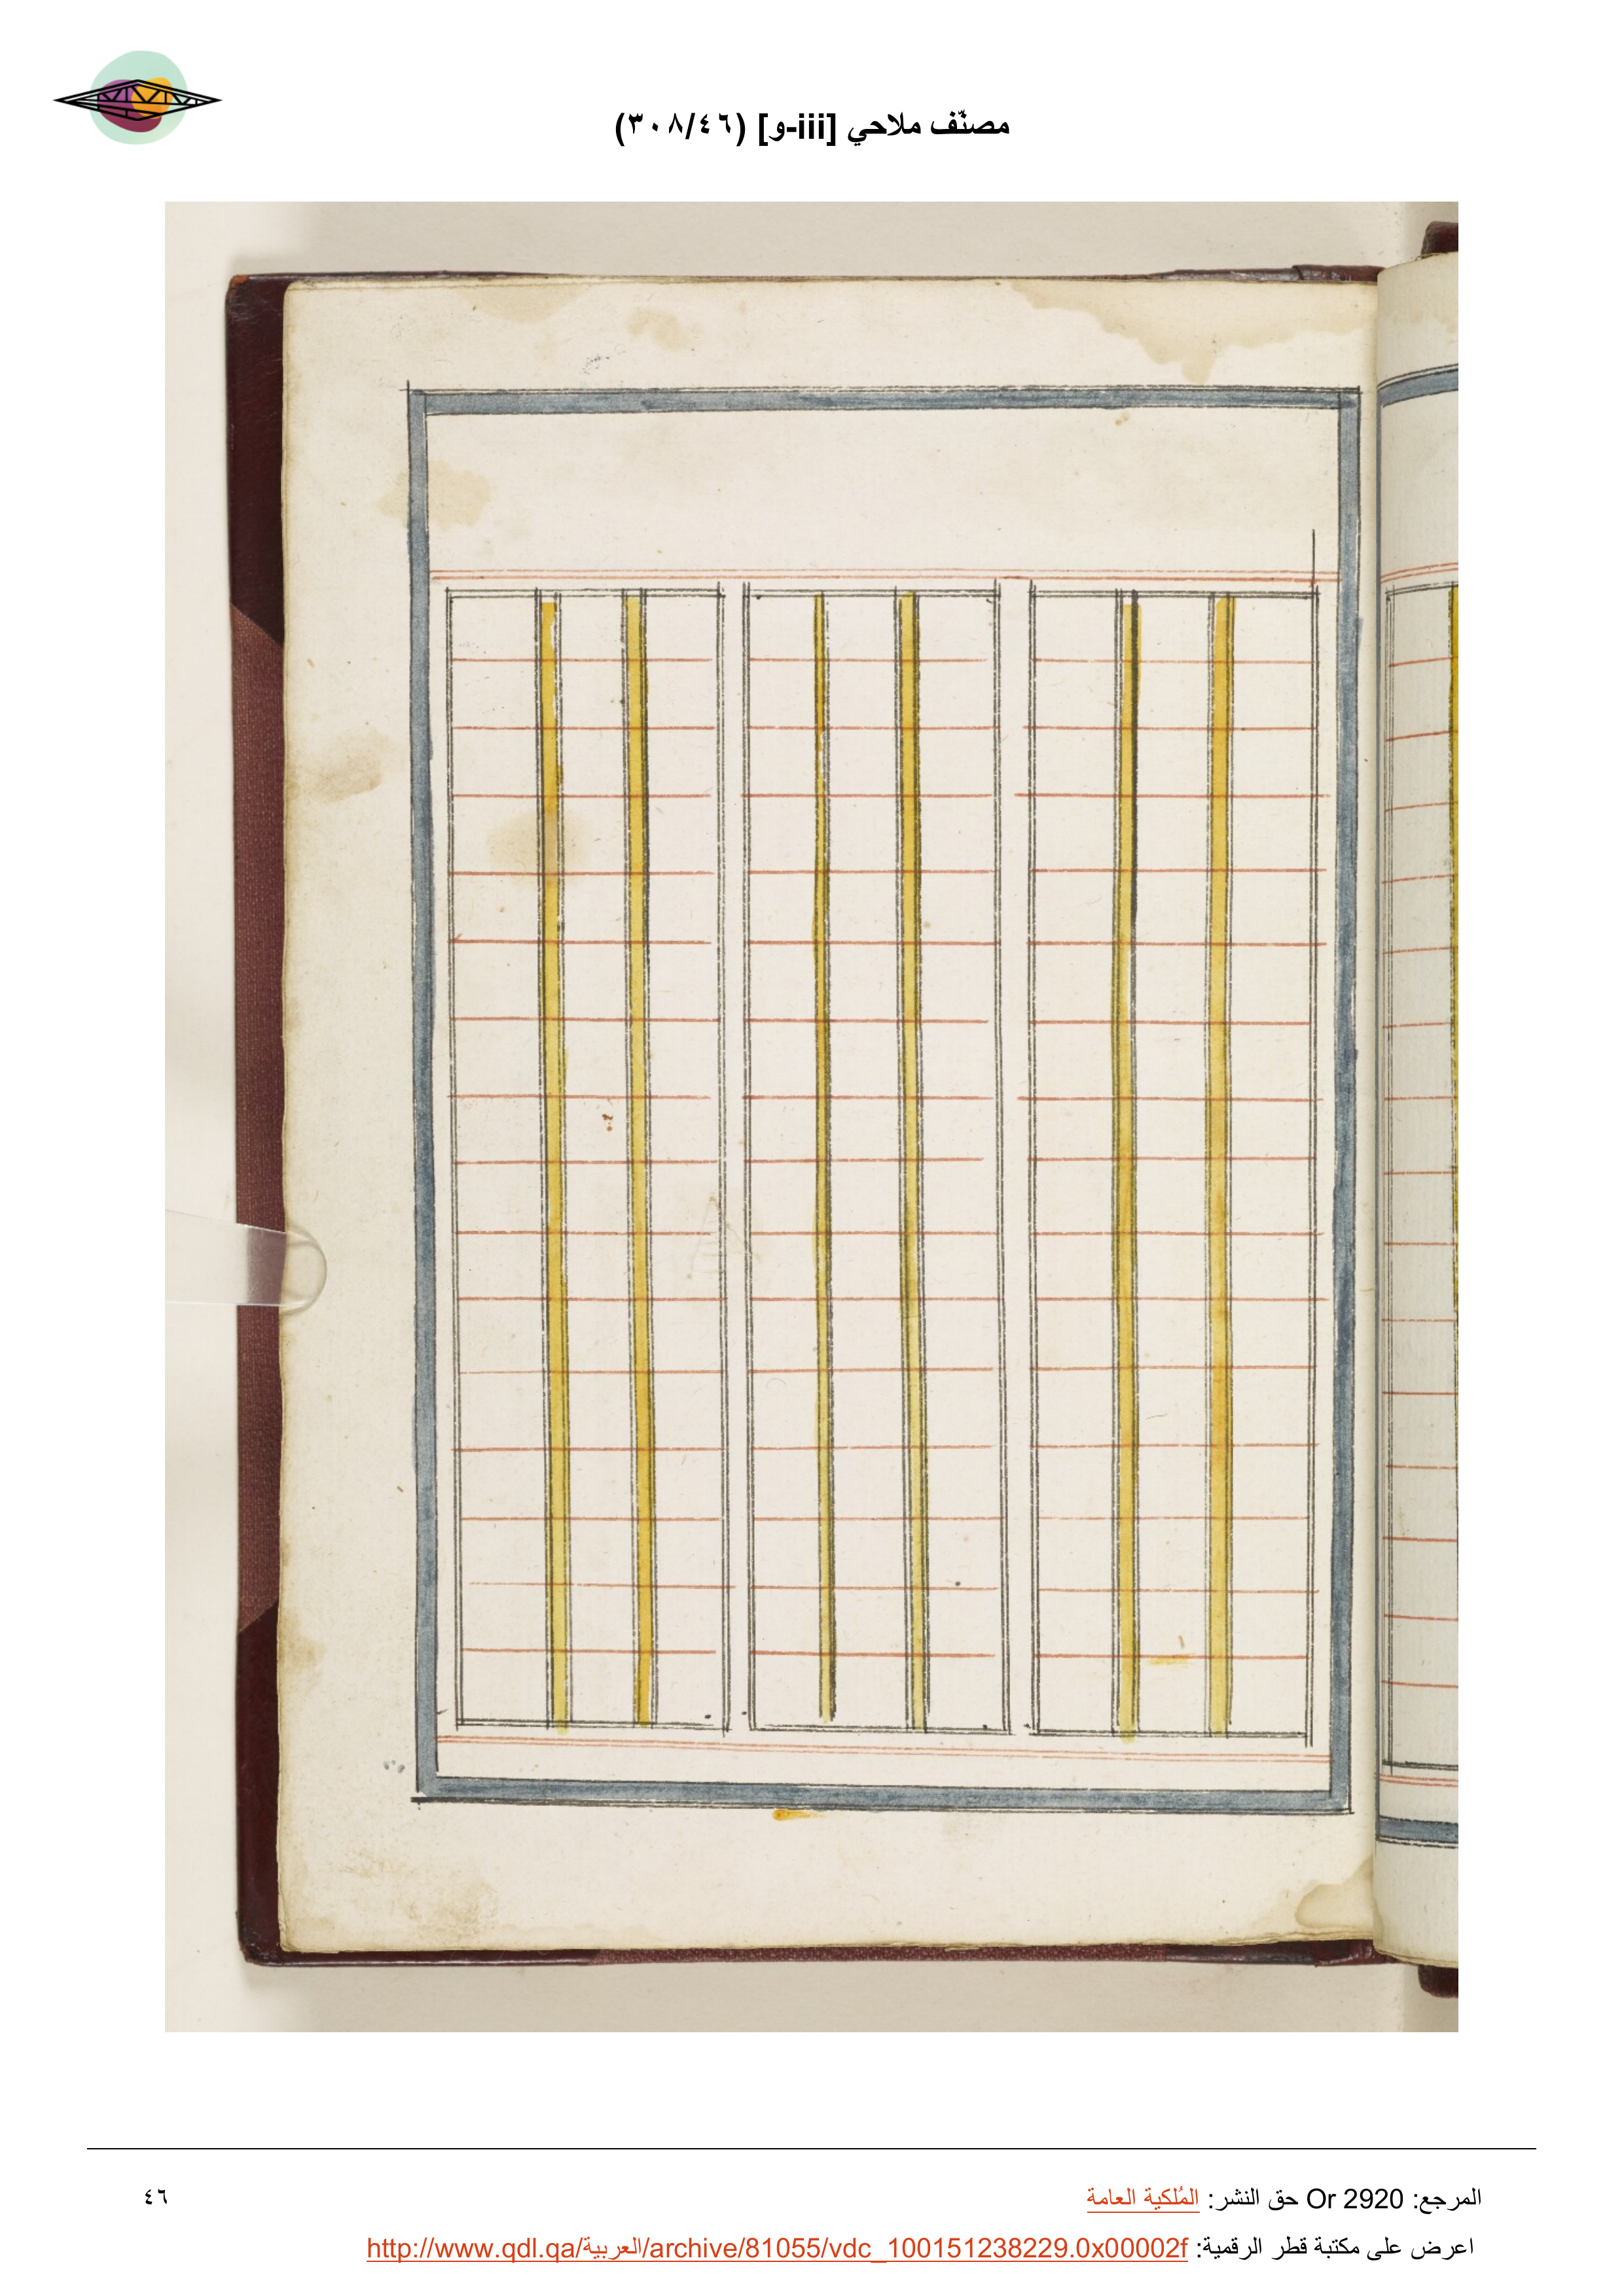 مصنّف ملاحي [iii-و] (٣٠٨/٤٦)
المرجع: Or 2920 حق النشر: المُلكية العامة
٤٦
اعرض على مكتبة قطر الرقمية: http://www.qdl.qa/العربية/archive/81055/vdc_100151238229.0x00002f